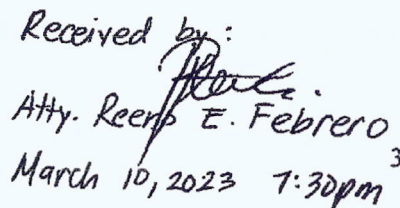 Received by:
Atty. Reeno E. Febrero
3
March 10, 2023 7:30pm